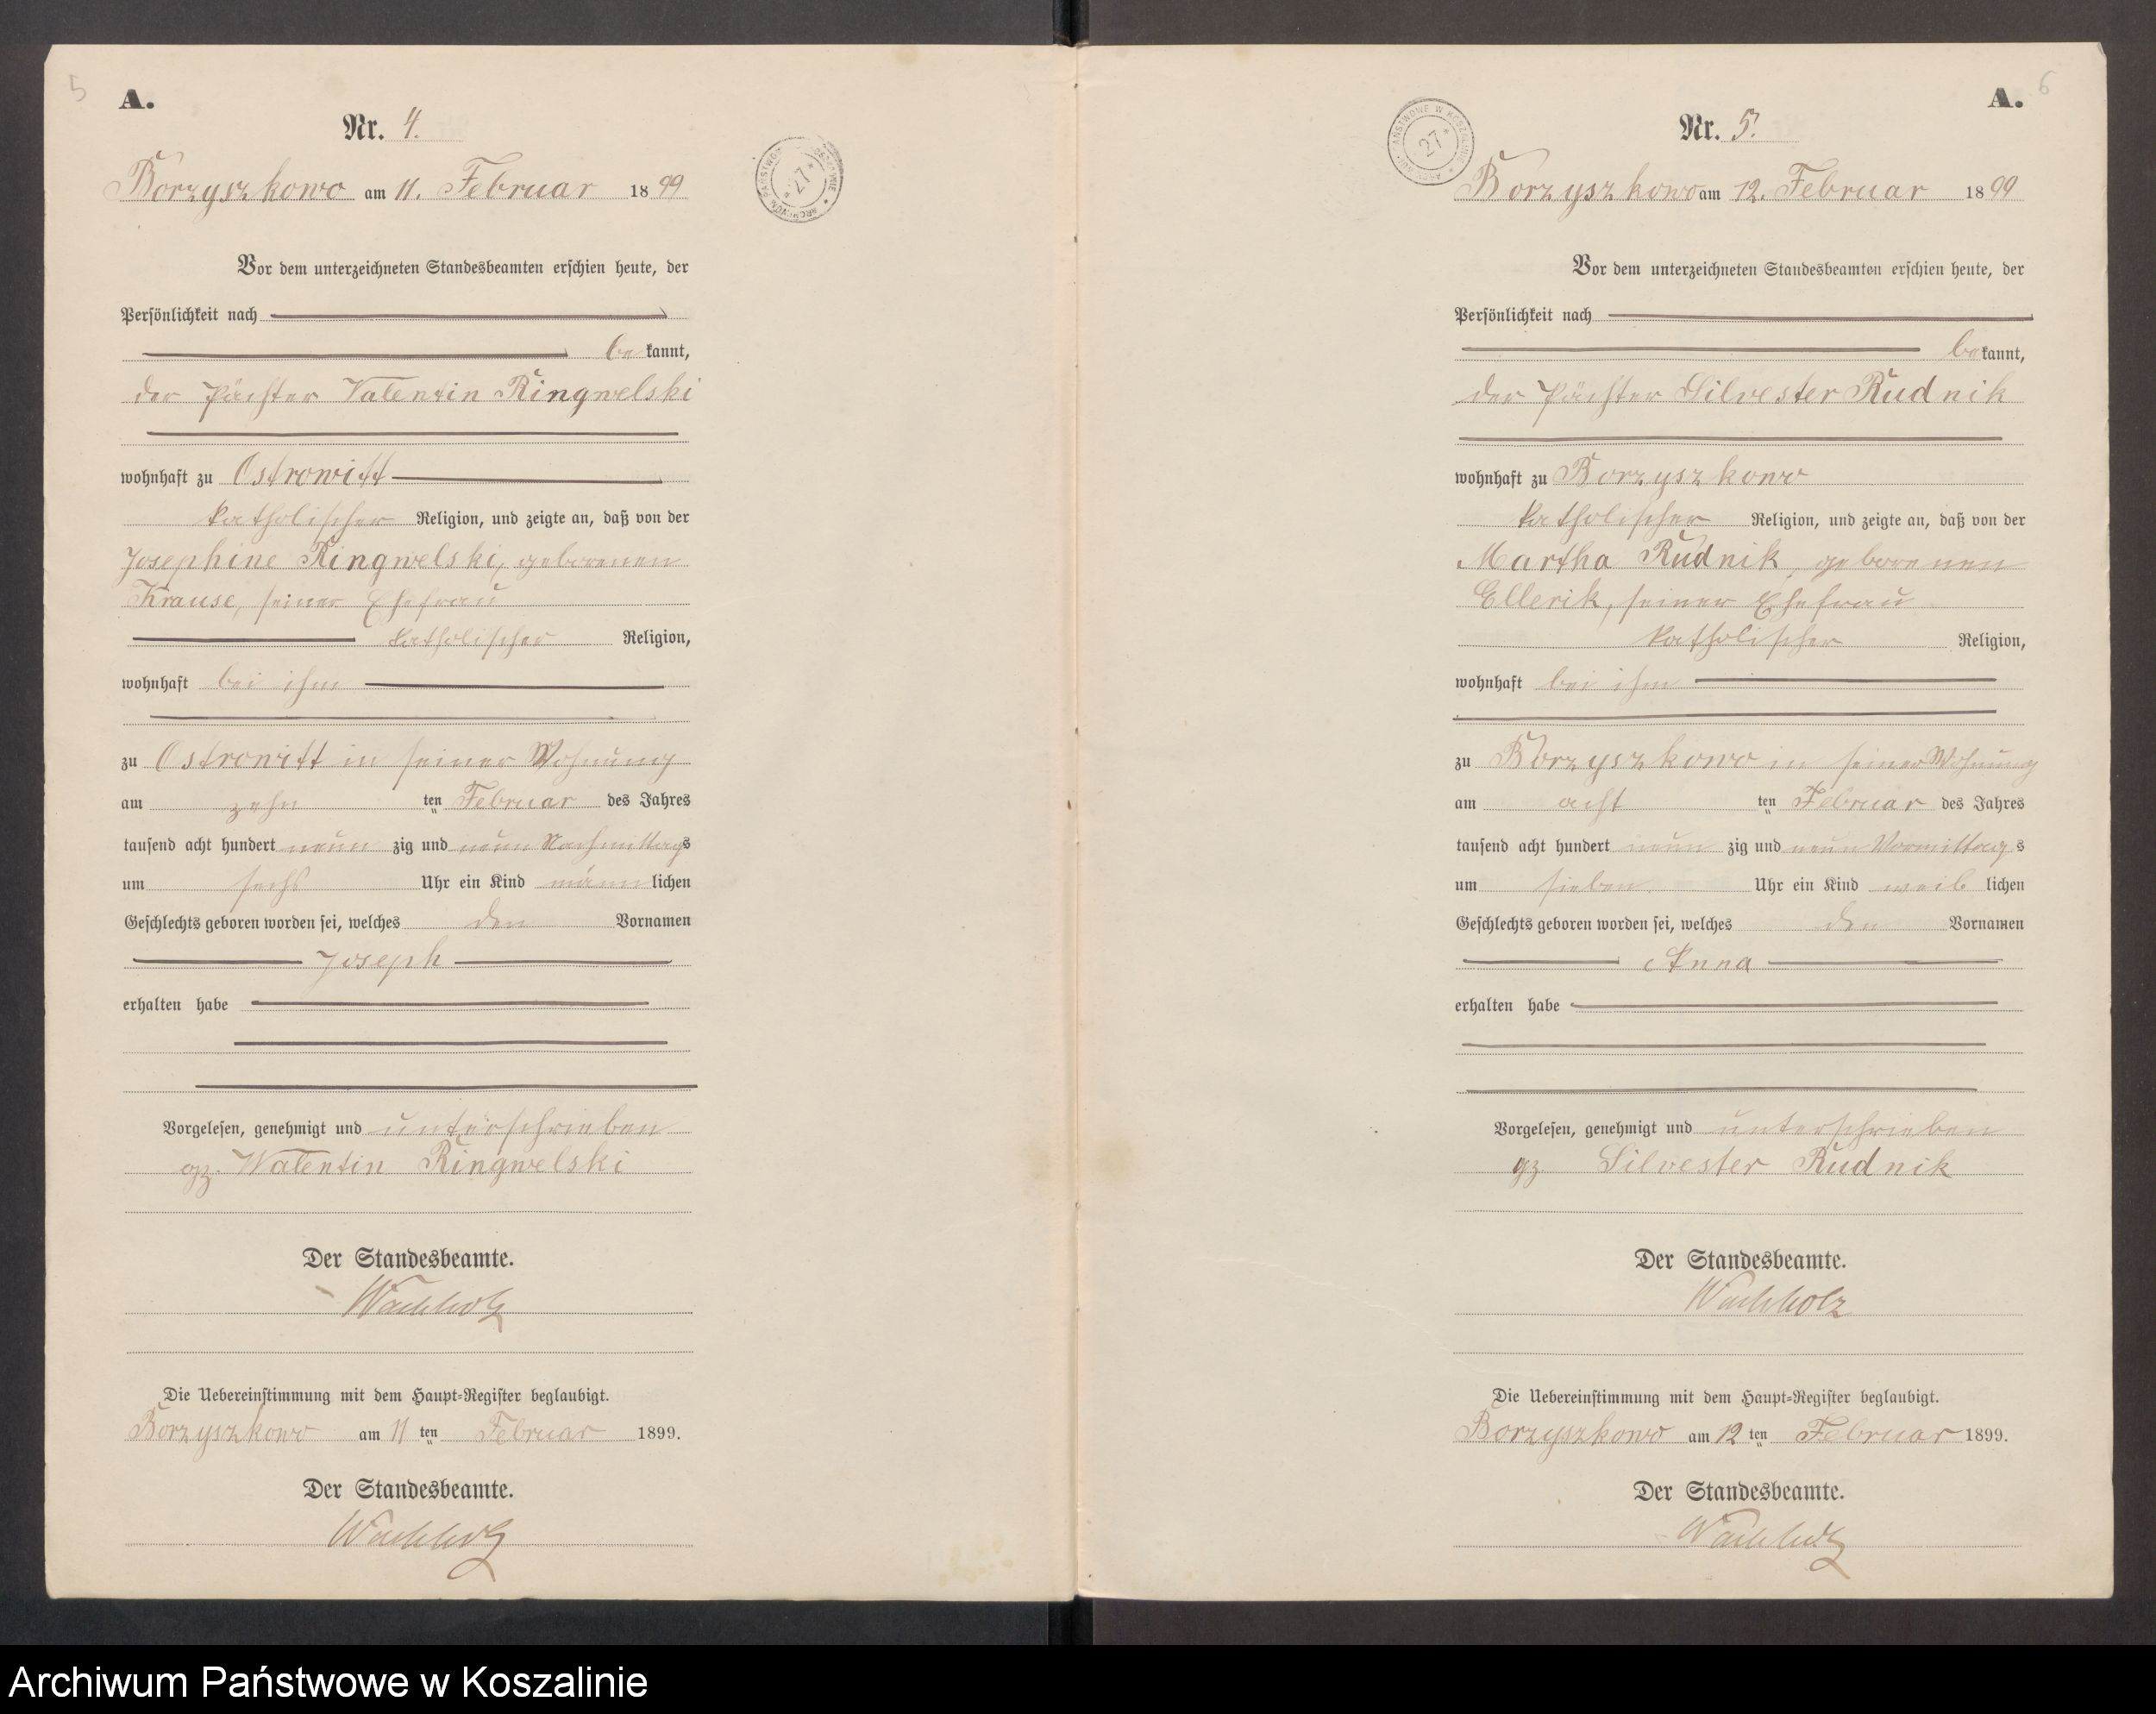 5
A.
Nr. 4.
Borzyszkowo am 11. Februar 1899
Vor dem unterzeichneten Standesbeamten erschien heute, der
Persönlichkeit nach
bekannt,
der Pächter Valentin Ringwelski
wohnhaft zu Ostrowitt
katholischer Religion, und zeigte an, daß von der
Josephine Ringwelski, geborenen
Krause, seiner Ehefrau
katholischer Religion,
wohnhaft bei ihm
zu Ostrowitt in seiner Wohnung
am zehn ten Februar des Jahres
tausend acht hundert neun zig und neun Nachmittags
um sechs Uhr ein Kind männlichen
Geschlechts geboren worden sei, welches den Vornamen
Joseph
erhalten habe
Vorgelesen, genehmigt und unterschrieben
gz. Walentin Ringwelski
Der Standesbeamte.
Wachholz
Die Uebereinstimmung mit dem Haupt-Register beglaubigt.
Borzyszkowo am 11 ten Februar 1899.
Der Standesbeamte.
Wachholz
ARCHIWUM PAŃSTWOWE W KOSZALINIE
* 27 *
6
A.
Nr. 5.
ARCHIWUM PAŃSTWOWE W KOSZALINIE
27
Borzyszkowo am 12. Februar 1899
Vor dem unterzeichneten Standesbeamten erschien heute, der
Persönlichkeit nach
bekannt,
der Pächter Silvester Rudnik
wohnhaft zu Borzyszkowo
katholischer Religion, und zeigte an, daß von der
Martha Rudnik, geborenen
Ellerik, seiner Ehefrau
katholischer Religion,
wohnhaft bei ihm
zu Borzyszkowo in seiner Wohnung
am acht ten Februar des Jahres
tausend acht hundert neun zig und neun Vormittags
um sieben Uhr ein Kind weiblichen
Geschlechts geboren worden sei, welches den Vornamen
Anna
erhalten habe
Vorgelesen, genehmigt und unterschrieben
gz Silvester Rudnik
Der Standesbeamte.
Wachholz
Die Uebereinstimmung mit dem Haupt-Register beglaubigt.
Borzyszkowo am 12 ten Februar 1899.
Der Standesbeamte.
Wachholz
Archiwum Państwowe w Koszalinie